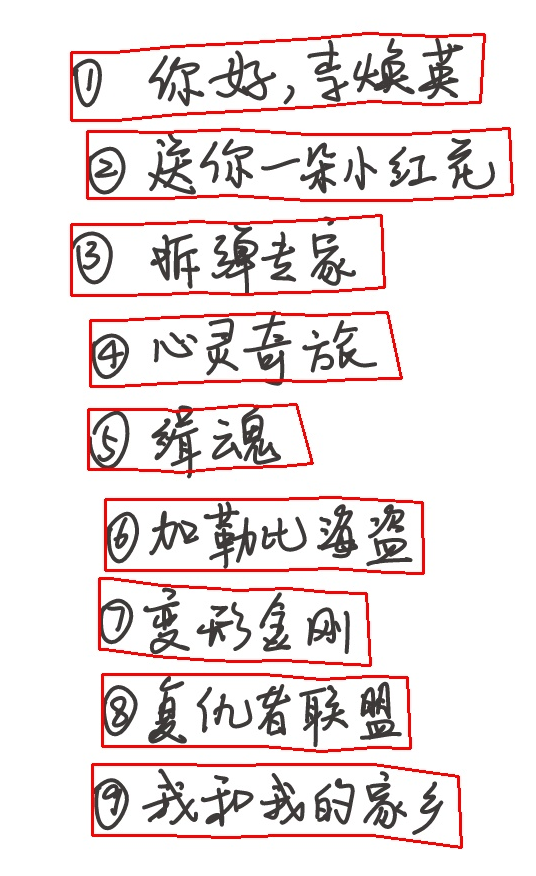 ① 你好,李焕英
② 送你一朵小红花
③ 拆弹专家
④ 心灵奇旅
⑤ 缉魂
⑥ 加勒比海盗
⑦ 变形金刚
⑧ 复仇者联盟
⑨ 我和我的家乡